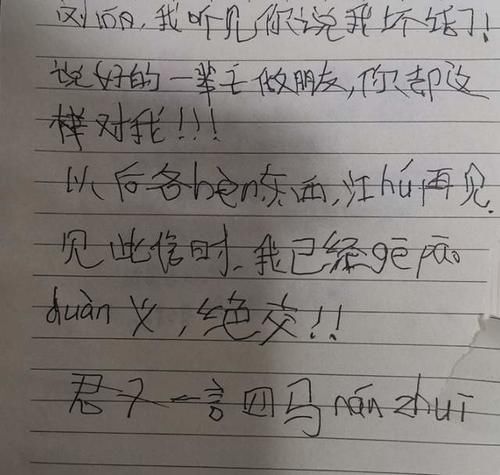 我听见你说我坏话了!
说好的一辈子做朋友,你却这
样对我!!!
以后各bèn东西,江hú再见.
见此信时,我已经gē páo
duàn义,绝交!!
君子一言四马nán zhuī